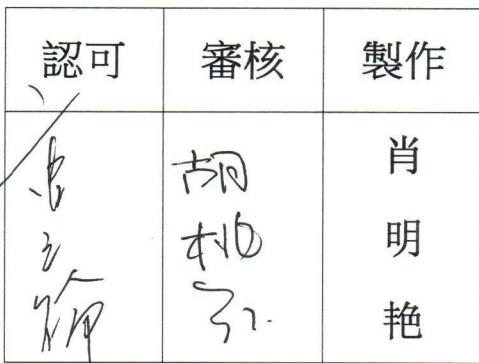 認可 審核 製作
胡桃红
肖明艳